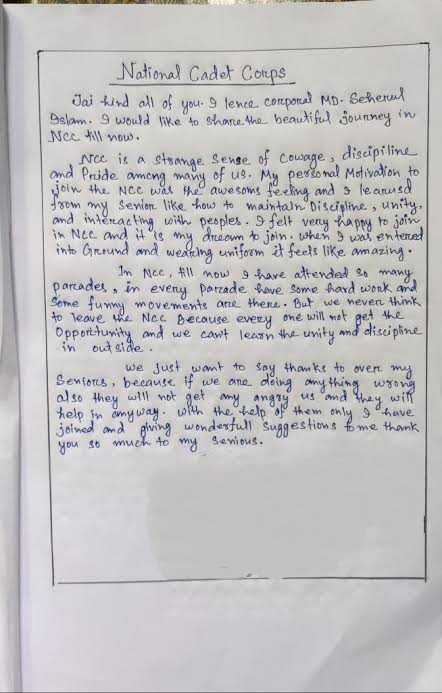 National Cadet Corps
Jai hind all of you. I lence corporal MD. Seherul
Islam. I would like to share the beautiful journey in
NCC till now.
NCC is a strange sense of cowage, discipiline
and Pride among many of us. My personal Motivation to
join the NCC was the awesoms feeling and I learused
from my senior like how to maintain Discipline, unity,
and interacting with peoples. I felt very happy to join
in NCC and it is my dream to join. when I was entered
into Ground and wearing uniform it feels like amazing.
In NCC, till now I have attended so many
parades, in every parade have some hard work and
some funny movements are there. But we never think
to leave the NCC Because every one will not get the
Opportunity and we can't learn the unity and discipline
in out side.
we just want to say thanks to over my
Seniors, because if we are doing any thing wrong
also they will not get any angry us and they will
help in anyway. with the help of them only I have
joined and giving wonderfull suggestions to me thank
you so much to my senious.